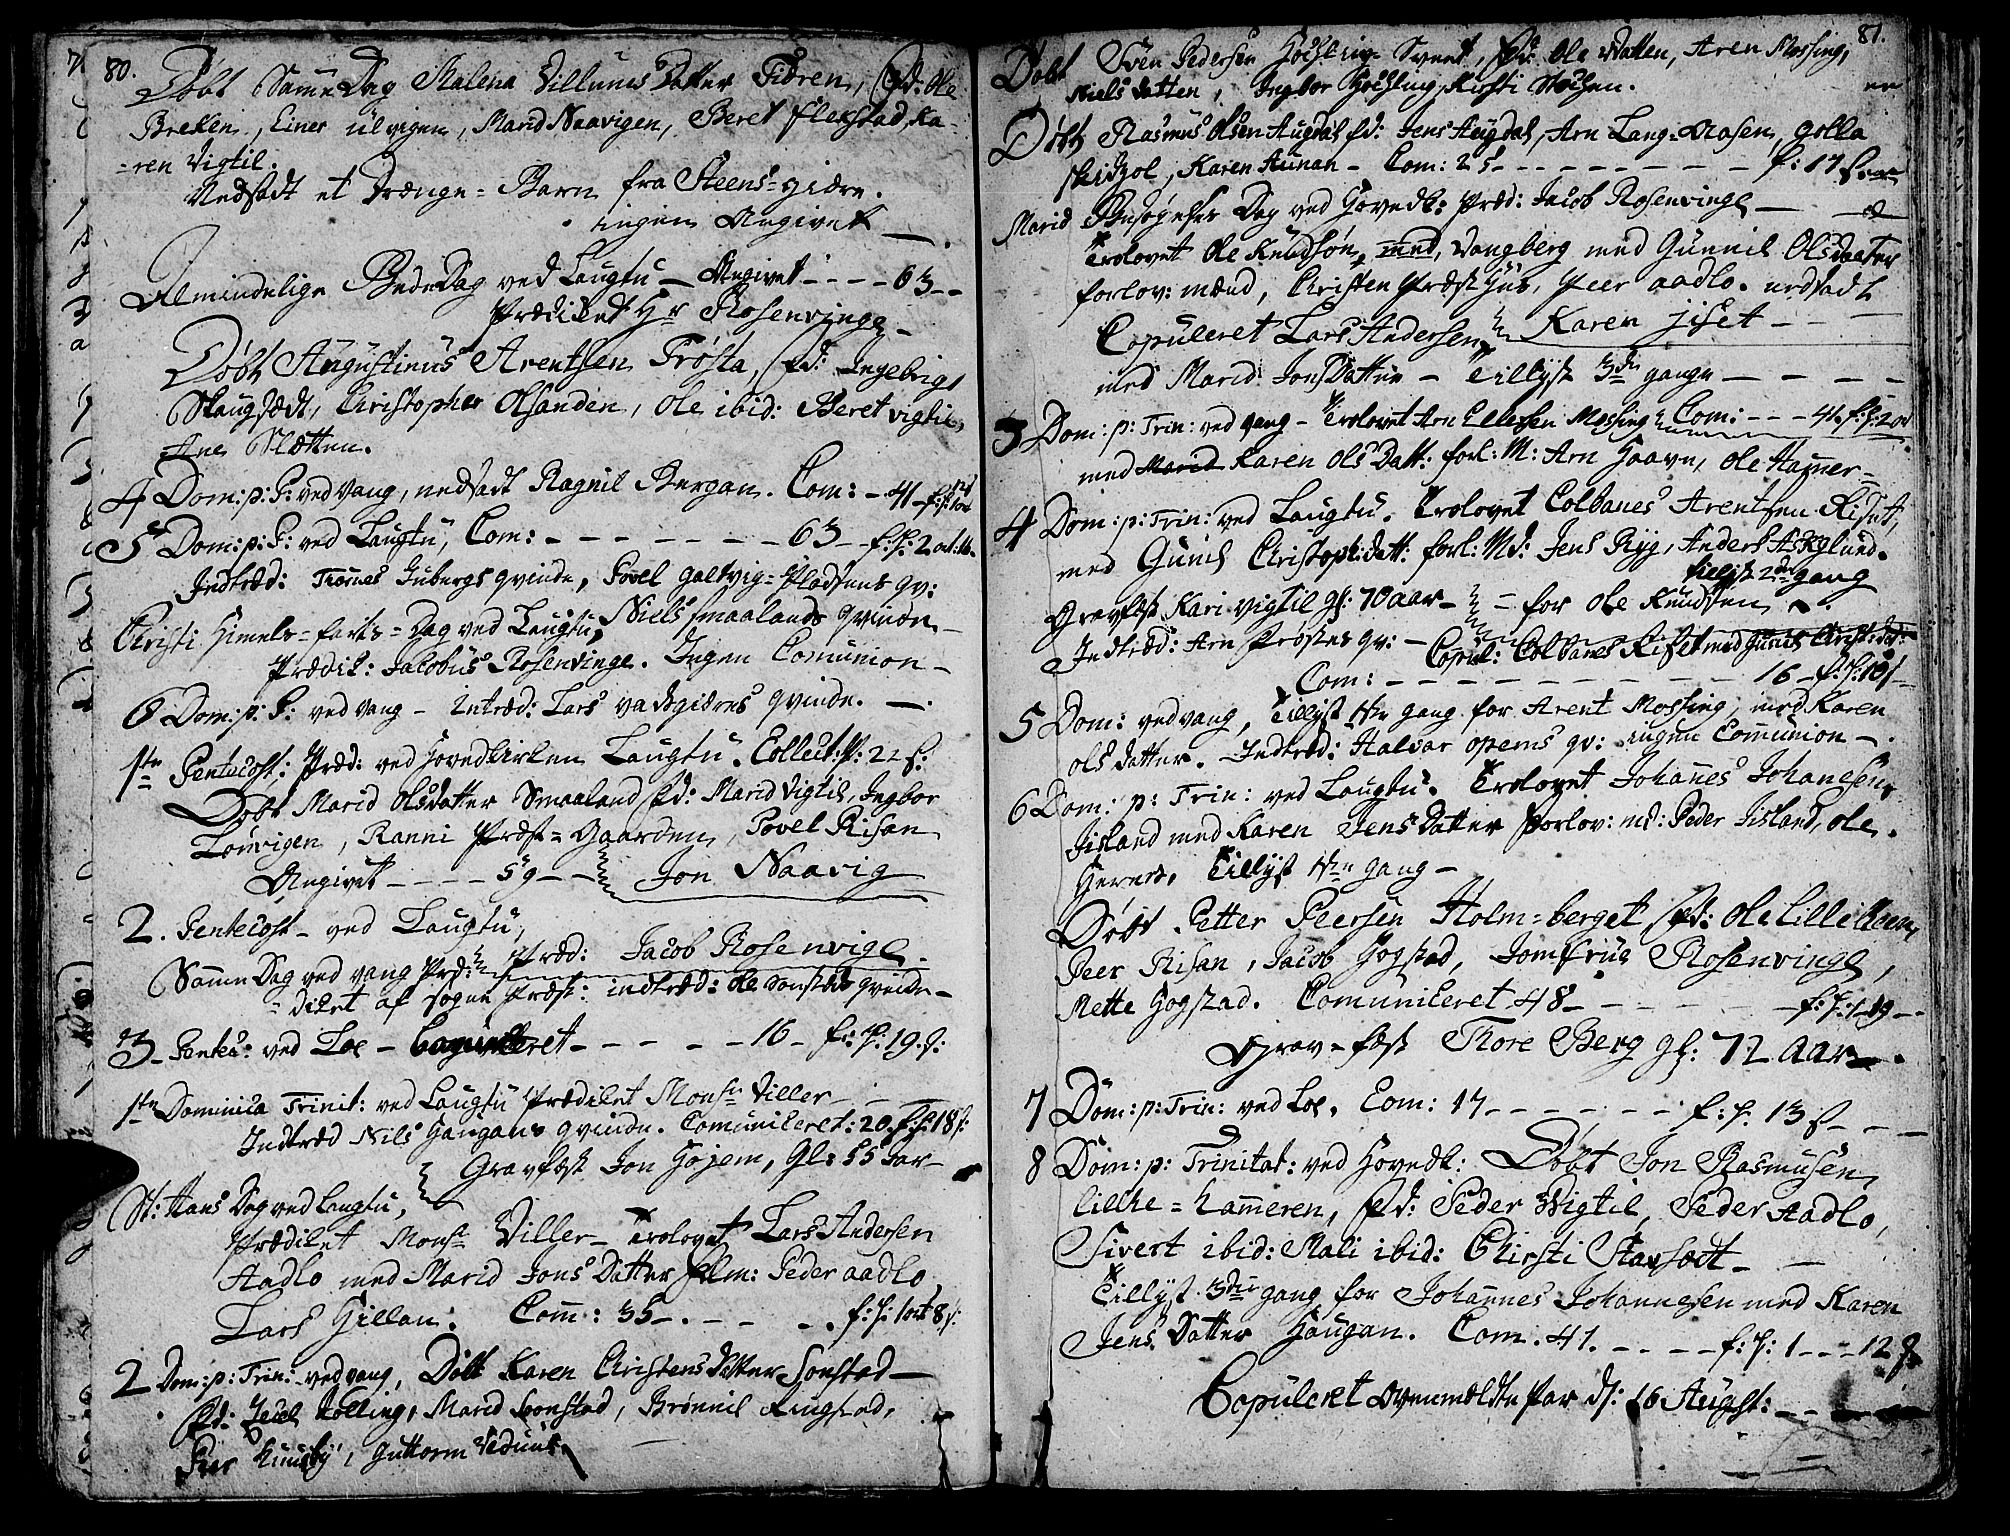 80.
Døbt Samme Dag Malena Villums Datter Fiæren, Fd: Ole
Breken, Einer ulvigen, Marid Naavigen, Beret Flekstad, Ka-
-ren Vigtil.
Nedsadt et Drænge-Barn fra Steens-Hiære.
ingen Angivet —
Almindelige BedeDag ved Laugtu — Angivet - - - - 63 - -
Prædiket Hr Rosenvinge -
Døbt Augustinus Arentsen Trøsta, Fd: Ingebrigt
Skaugsædt, Christopher Olsanden, Ole ibid: Beret vigtil,
Ane Slætten.
4 Dom: p: P: ved Vang, nedsadt Ragnil Bergan. Com: - 41 - f: p: 1 ort
5 Dom: p: P: ved Laugtu, Com: - - - - - - - 63 - f: p: 2 ort
Indtræd: Tromes Iubergs qvinde, Povel Galtvig-Pladsens qv:
Niels smaalands qvinde
Christi Himels-farts-Dag ved Laugtu,
Prædik: Jacobus Rosenvinge. Ingen Comunion -
6 Dom: p: P: ved Vang - Intræd: Lars qvinde. —
1ste Pentecost: Præd: ved Hovedkirken Laugtu. Collect: p: 22 s:
Døbt Marid Olsdatter Smaaland Fd: Marid Vigtil, Ingbor
Lørvigen, Ranni Præst-Gaarden, Povel Risan
Angivet - - - - 59 - - Jon Naavig
2. Pentecost - ved Laugtu,
Præd: Jacob Rosenvinge.
Samme Dag ved Vang Præ-
-diket af Sogne Præst: indtræd: Ole Sonstads qvinde -
3 - Pentec: ved Loe - - - - - - 16 - f: p: 19 s:
1ste Dominica Trinit: ved Laugtu Prædiket Monsr Viller - - -
Indtræd Nils Haugans qvinde. Comunikeret: 20. f: p: 18 s:
Gravfæst Jon Højem, Gl: 55 Aar -
St: Hans Dag ved Laugtu,
Prædiket Monsr Viller - Trolovet Lars Andersen
Aadlo med Marid Jons Datter Flm: Peder aadlo
Lars Gillan: Com: 35 - . - - - . f: p: 1 ort 8 s:
2 Dom: p: Trin: - ved Vang, Døbt Karen Christens Datter Sonstad —
Fd: Kolling, Marid Sonstad, Brønnil Ringstad,
Peer , Guttorm
81.
Døbt Svén Pedersen - Sveet, Fd: Ole Vatten, Aren Mossing,
Niels Vatten, Ingbor , Kirsti .
Døbt Rasmus Olsen Augdal Fd: Jens Augdal, Arn Lang-Aasen, Golla
, Karen Aunan - Com: 25 - - - - - - - f: 17 s:
Marid Besøgelses Dag ved Hovedk: Præd: Jacob Rosenvinge — —
Trolovet Ole Knudsøn, med, Vangberg med Gunnil Olsdaater
forlov: mænd, Christen Præsthus, Peer aadlo. nedsadt
Karen
Copuleret Lars Andersen
med Marid JonsDatter - Tillyst 3die gange - - - - -
3 Dom: p: Trin: ved Vang - Trolovet Arn Ellefsen Mossing Com: - - - 41. f: p: 2 ort
med Marid Karen Ols Datt: forl: M: Arn Haavn, Ole Hamer -
4 Dom: p: Trin: ved Laugtu. Trolovet Colbanes Arentsen Riset,
med Gunil Christoph: datt: forl: Md: Jens Ryg, Anders Asklund.
Tillyst 2den gang
Gravfæst Kari Vigtil gl: 70 aar - - for Ole Knudsen
Indtræd: Arn Prøstes qv: - Copul: Colbanes Riset med Gunil Christ: dat:
Com: - - - - - - - - - - 16 - f: p: 10 s -
5 Dom: ved Vang, Tillyst 1ste gang for Arent Mossing, med Karen
Ols Datter. Indtræd: Halvar opems qv: ingen Comunion -
6 Dom: p: Trin: ved Laugtu. Trolovet Johannes Johanesen,
Jisland med Karen Jens Datter Forlov: md: Peder Jisland, Ole
, Tillyst 1ste gang -
Døbt Petter Peersen Holm-berget Fd: Ole Lille Moen,
Peer Risan, Jacob Hogstad, Jomfrue Rosenvinge,
Mette Hogstad. Comunikeret 48 - - - - f: p: 1 - 19 -
Grav-fæst Thore Berg gl: 72 Aar -
7 Dom: p: Trin: ved Loe. Com: 17 - - - - - f: p. 13 s - - -
8 Dom: p: Trinitat: ved Hovedk: Døbt Jon Rasmusen
Lilke-hammeren, Fd: Peder Vigtil, Peder Aadlo,
Sivert ibid: Mali ibid: Chirsti Stavsædt - —
Tillyst 3die gang for Johannes Johannesen med Karen
Jens Datter Haugan. Com. 41. - - - - f: p: 1 - - - 12 s
Copuleret ovenmeldte Par d: 16 August: - -